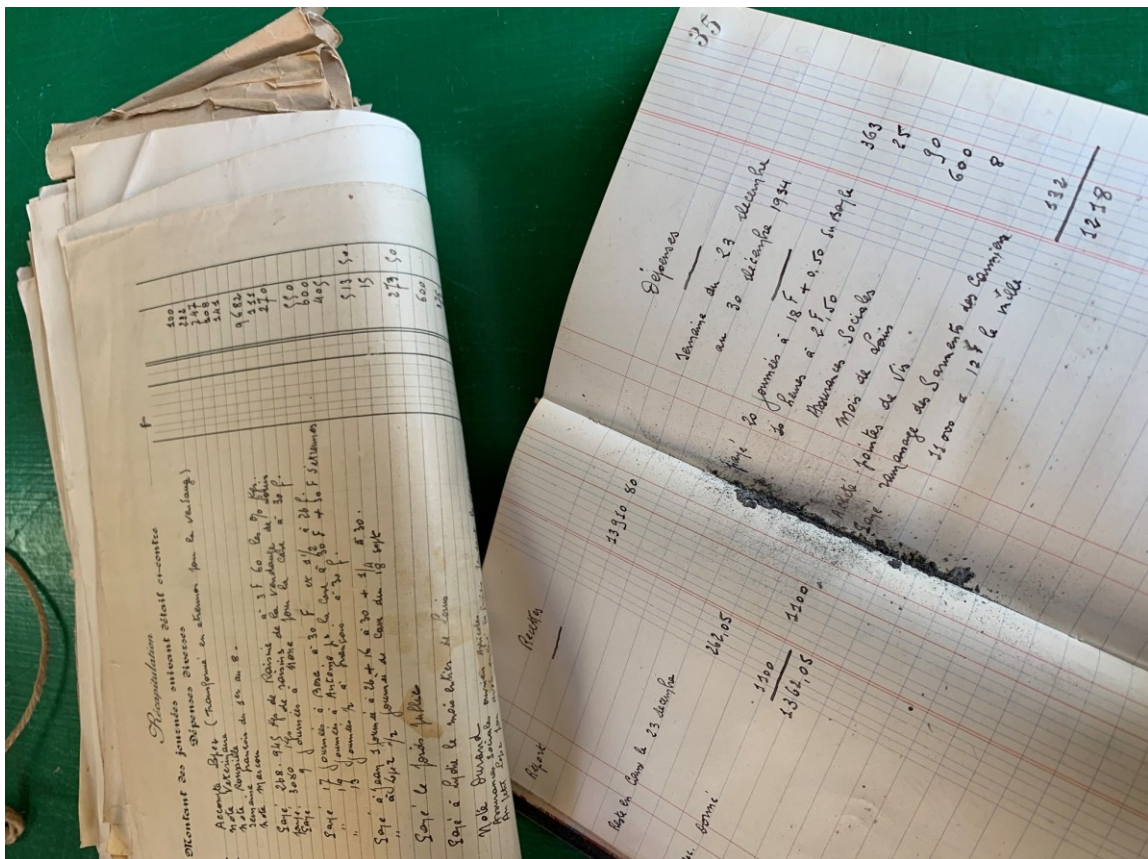 Récapitulation
Montant des journées suivant détail ci-contre
Dépenses diverses
F
Accompte Lopez (Transporté en chemin pour la vendange) 100
Note Vétérinaire 222
Note Roupille 247
Semaine François du 1er au 8. 208
Note Marcou 141
Payé 268.945 Kg de Raisins à 3 F 60 les % Kgs. 9682
Payé 3080 Kgs de raisins de la vendange de Louis 111
Payé 9 journées à Mone pour la Cave à 30 F. 270
Payé 17 journées à Rosa à 30 F et 1/2 à 26 F.
" journées à Antoine pr la Cave à 30 F + 30 F étrennes 600
" 13 journées 1/2 à François à 30 F. 405
Payé à Jean 3 journées à 26 + 16 à 30 + 1/4 à 30. 513 50
" à Lopez 1/2 journée de Cave du 18 sept 15
273 50
Payé à Lydie le mois entier de Louis 600
Note Durand
35
Dépenses
Semaine du 23 décembre
au 30 décembre 1934
Payé 20 journées à 18 F + 0.50 363
10 heures à 2 F,50 25
Assurances Sociales 90
Mois de Louis 600
pointes de Vis 8
Payé ramassage des Sarments des
11000 à 12 F le mille 132
1218
Recettes
Report 13910 80
Reste en Caisse le 23 décembre 262,05
Donné 1100 1100
1362,05